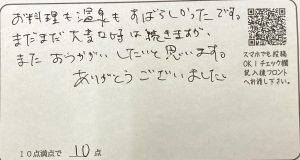 お料理も温泉もすばらしかったです。
まだまだ大変な時は続きますが、
またおうかがいしたいと思います。
ありがとうございました
スマホでも投稿
OK！チェック欄
記入後フロント
へお渡し下さい。
10点満点で 10 点